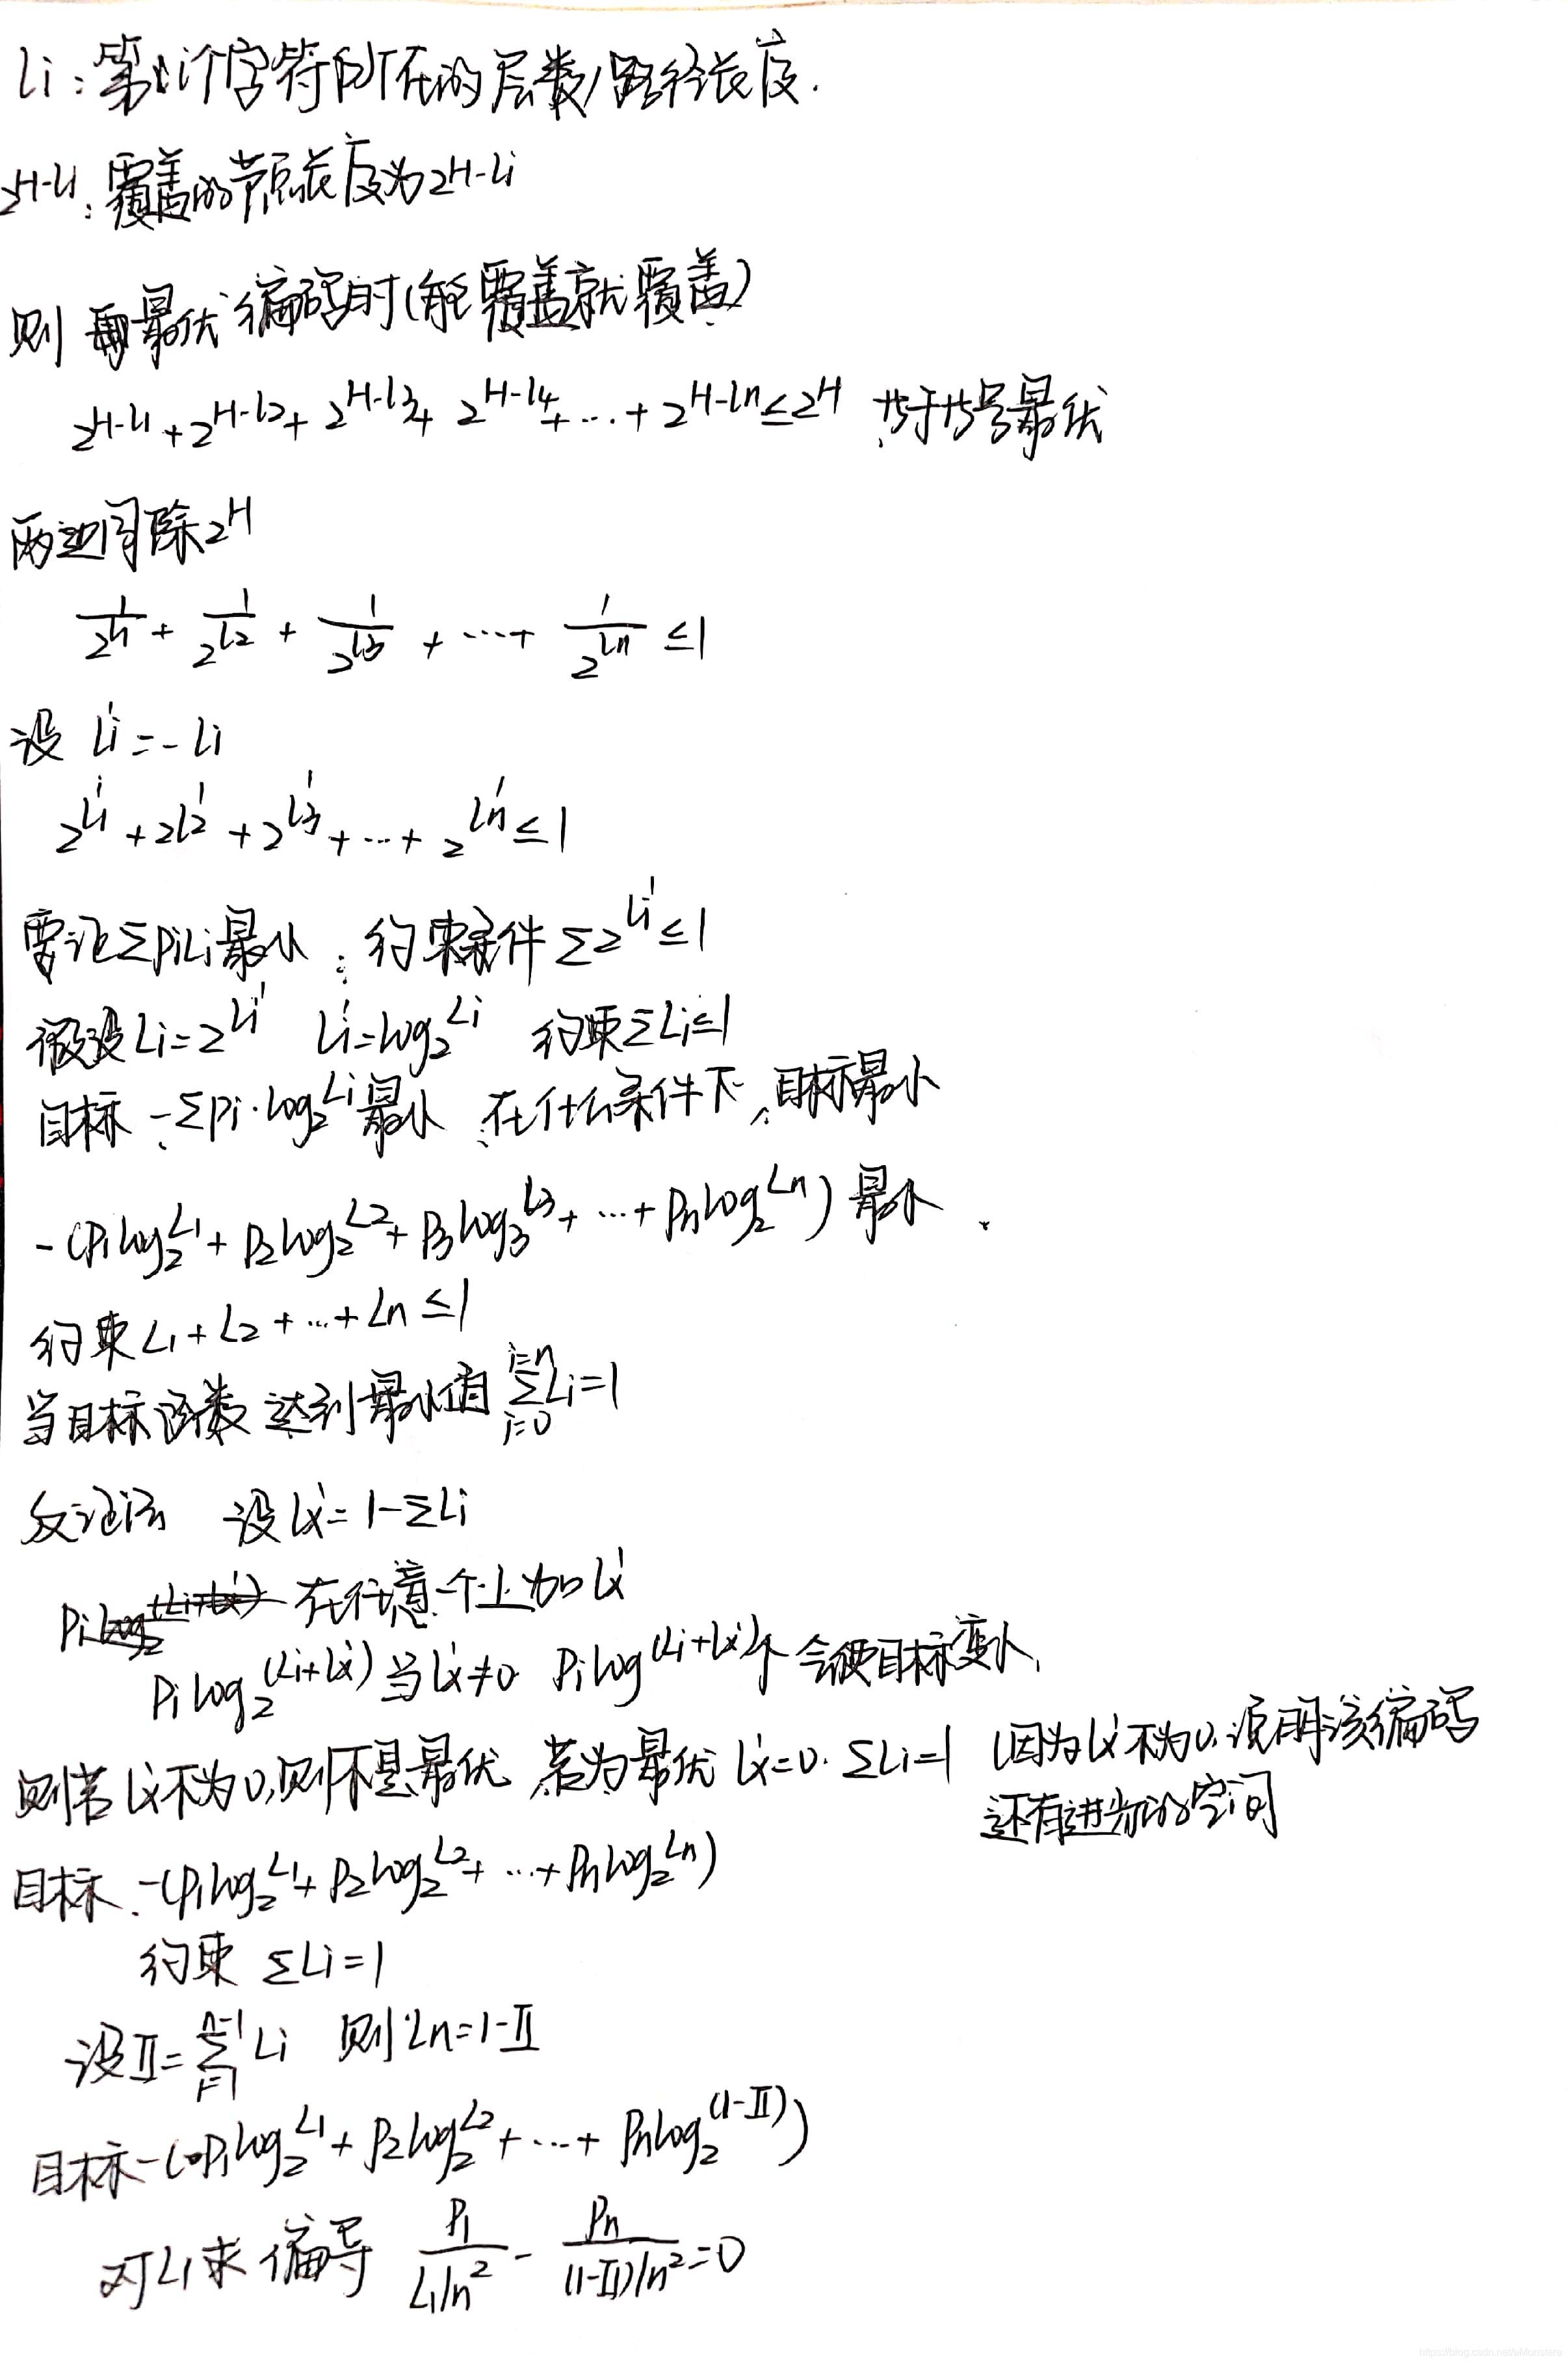 li：第i个字符所在的层数/路径长度.
2^H-l1：覆盖的节点长度为2^H-li
则 最优编码时(能覆盖就覆盖)
2^H-l1 + 2^H-l2 + 2^H-l3 + 2^H-l4 + … + 2^H-ln ≤ 2^H 节于节号最优
两边同除2^H
1/2^l1 + 1/2^l2 + 1/2^l3 + … + 1/2^ln ≤ 1
设 li' = - li
2^l1' + 2l2' + 2^l3' + … + 2^ln' ≤ 1
要让∑pili最小：约束条件 ∑2^li' ≤ 1
假设Li=2^li' li'=log2^Li 约束∑Li≤1
目标 -∑pi·log2^Li最小 在什么条件下,目标最小
-(P1log2^L1 + P2log2^L2 + P3log3^L3 + … + Pnlog2^Ln) 最小.
约束L1+L2+…+Ln ≤1
当目标函数达到最小值 ∑(i=0, i=n) Li=1
反证法 设lx'= 1-∑Li
Pi 在任意一个上加lx'
Pilog2^(Li+lx') 当lx'≠0 Pilog^(Li+lx')个 会使目标变小,
则若lx'不为0,则不是最优 若为最优 lx'=0. ∑Li=1 (因为lx'不为0,说明该编码
还有进步的空间
目标 -(P1log2^L1 + P2log2^L2 + … + Pnlog2^Ln)
约束 ∑Li=1
设Ⅱ=∑(i=1, n-1) Li 则Ln=1-Ⅱ
目标-(P1log2^L1 + P2log2^L2 + … + Pnlog2^(1-Ⅱ))
对L1求偏导 P1/L1ln2 - Pn/(1-Ⅱ)ln2 =0